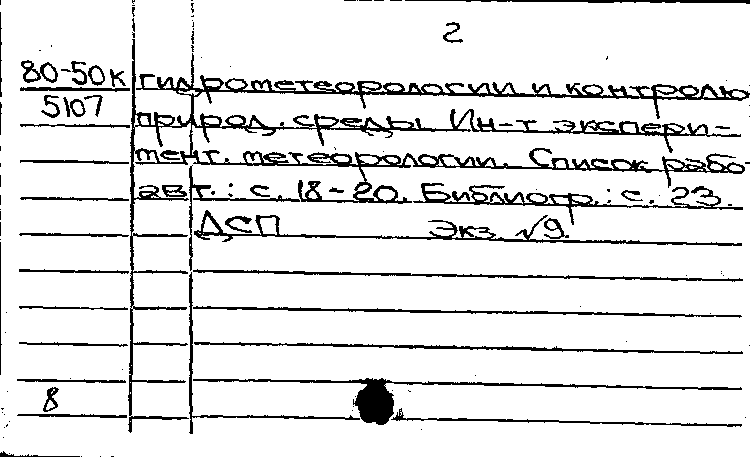 2
80-50к гидрометеорологии и контролю
5107 природ. среды. Ин-т экспери-
мент. метеорологии. Список работ
авт.: с. 18-20. Библиогр.: с. 23.
ДСП Экз. √9.
8